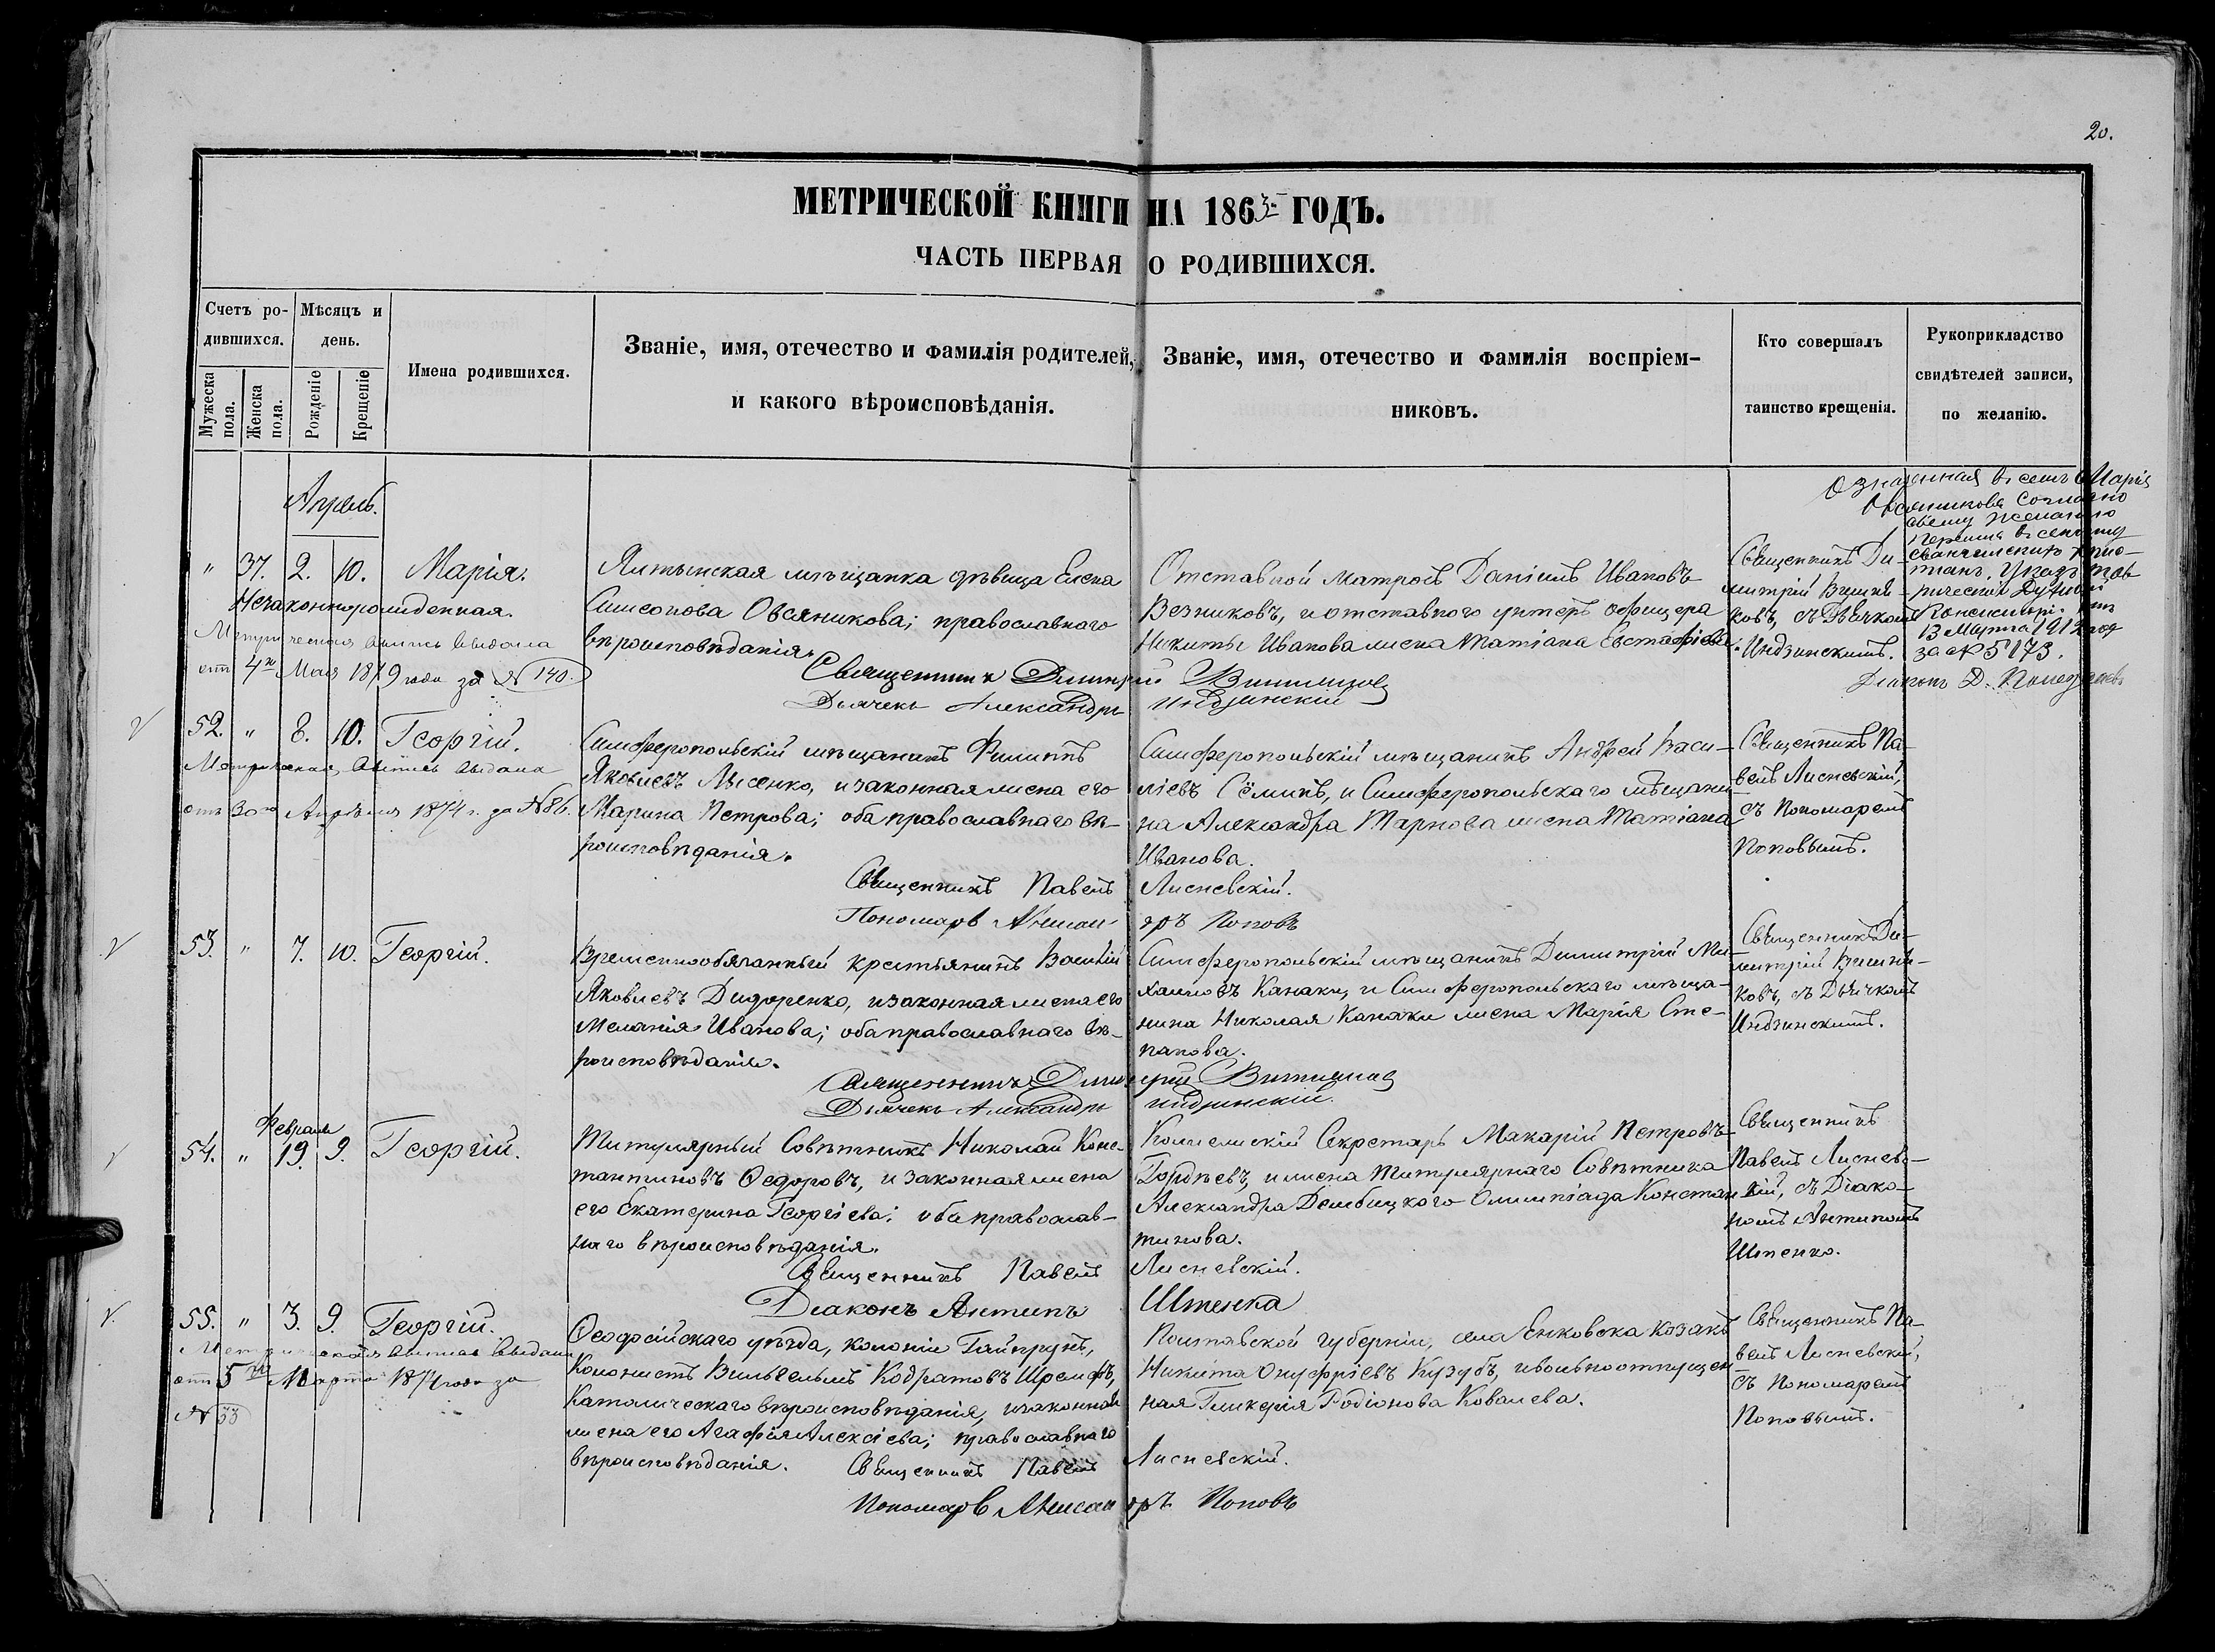 20.
МЕТРИЧЕСКОЙ КНИГИ НА 1863 ГОДЪ.
ЧАСТЬ ПЕРВАЯ О РОДИВШИХСЯ.
Счетъ родившихся.
Мужеска пола.
Женска пола.
Мѣсяцъ и день.
Рожденіе
Крещеніе
Имена родившихся.
Званіе, имя, отечество и фамилія родителей,
и какого вѣроисповѣданія.
Званіе, имя, отечество и фамилія воспріем-
никовъ.
Кто совершалъ
таинство крещенія.
Рукоприкладство
свидѣтелей записи,
по желанію.
Апрель.
" 37. 2. 10. Марія.
Незаконнорожденная.
Метрическая выпись выдана
отъ 4го Мая 1879 года за № 140.
Ялтынская мѣщанка дѣвица Елена
Симеонова Овсяникова; православнаго
вѣроисповѣданія.
Отставной Матросъ Даніилъ Ивановъ
Везниковъ, и отставного унтеръ офицера
Никиты Иванова жена Татіана Евстафіева.
Священникъ Ди-
митрій
ковъ, съ Дьячкомъ
Индзинскимъ.
Означенная въ семъ Марія
Овсяникова согласно
своему желанію
перешла въ секту
Указъ Тав-
рической Духовной
Консисторіи отъ
13 Марта 1912 год
за № 5173.
Діаконъ Д.
Священникъ Димитрій
Дьячекъ Александръ Индзинскій
52. " 8. 10. Георгій.
Метрическая выпись выдана
отъ 30го Апрѣля 1874 г. за № 86.
Симферопольскій мѣщанинъ Филиппъ
Яковлевъ Лысенко, и законная жена его
Марина Петрова; оба православнаго вѣ-
роисповѣданія.
Симферопольскій мѣщанинъ Андрей Васи-
ліевъ Сёминъ, и Симферопольскаго мѣщани-
на Александра Тарнова жена Татіана
Иванова.
Священникъ Па-
велъ Лисневскій,
съ Пономаремъ
Поповымъ.
Священникъ Павелъ Лисневскій.
Пономарь Александръ Поповъ
53. " 7. 10. Георгій.
Временнообязанный крестьянинъ Василій
Яковлевъ Дидоренко, и законная жена его
Меланія Иванова; оба православнаго вѣ-
роисповѣданія.
Симферопольскій мѣщанинъ Димитрій Ми-
хаиловъ Канаки, и Симферопольскаго мѣща-
нина Николая Канаки жена Марія Сте-
панова.
Священникъ Ди-
митрій
ковъ, съ Дьячкомъ
Индзинскимъ.
Священникъ Димитрій
Дьячекъ Александръ Индзинскій.
Февраля
54. " 19. 9. Георгій.
Титулярный Совѣтникъ Николай Конс-
тантиновъ Ѳедоровъ, и законная жена
его Екатерина Георгіева; оба православ-
наго вѣроисповѣданія.
Коллежскій Секретарь Макарій Петровъ
Гордѣевъ, и жена Титулярнаго Совѣтника
Александра Дембицкаго Олимпіада Констан-
тинова.
Священникъ
Павелъ Лиснев-
скій, съ Діако-
номъ Антипомъ
Штенко.
Священникъ Павелъ Лисневскій.
Діаконъ Антипъ Штенка
55. " 3. 9. Георгій.
Метрическая выпись выдана
отъ 5го Марта 1874 года за
№ 53
Ѳеодосійскаго уѣзда, колоніи Гайнрунъ,
Колонистъ Вильгельмъ Кодратовъ
Католическаго вѣроисповѣданія, и законная
жена его Агафія Алексіева; православнаго
вѣроисповѣданія.
Полтавской губерніи, села Енковска козакъ
Никита Онуфріевъ Кузубъ, и вольноотпущен-
ная Гликерія Родіонова Ковалева.
Священникъ Па-
велъ Лисневскій,
съ Пономаремъ
Поповымъ.
Священникъ Павелъ Лисневскій.
Пономарь Александръ Поповъ